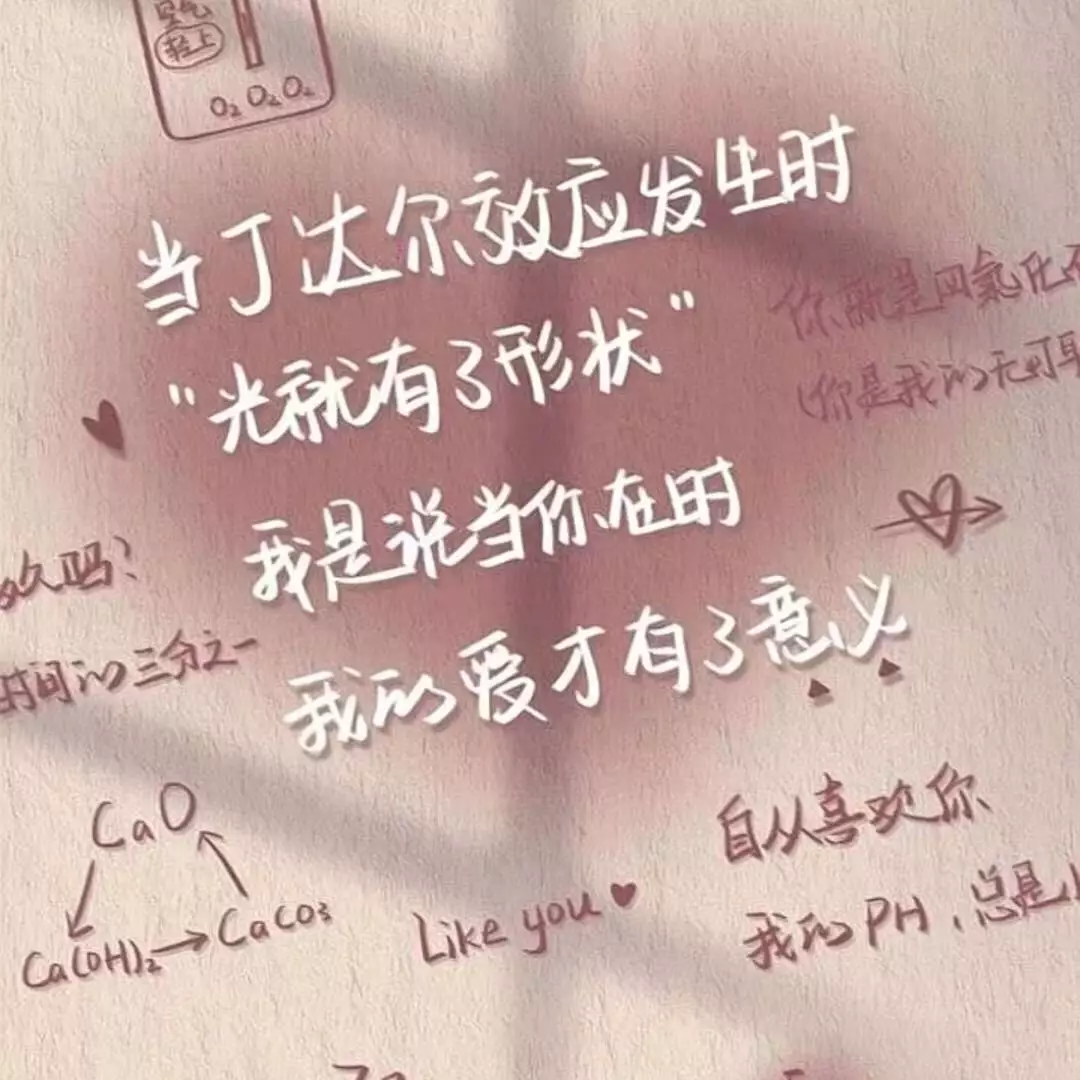 空气
轻上
O₂ O₂ O₂
当丁达尔效应发生时
"光就有了形状"
我是说当你在时
我的爱才有了意义
你就是四氯化
(你是我的无可
久吗？
时间的三分之一
CaO
Ca(OH)₂→CaCO₃
Like you
自从喜欢你
我的PH，总是